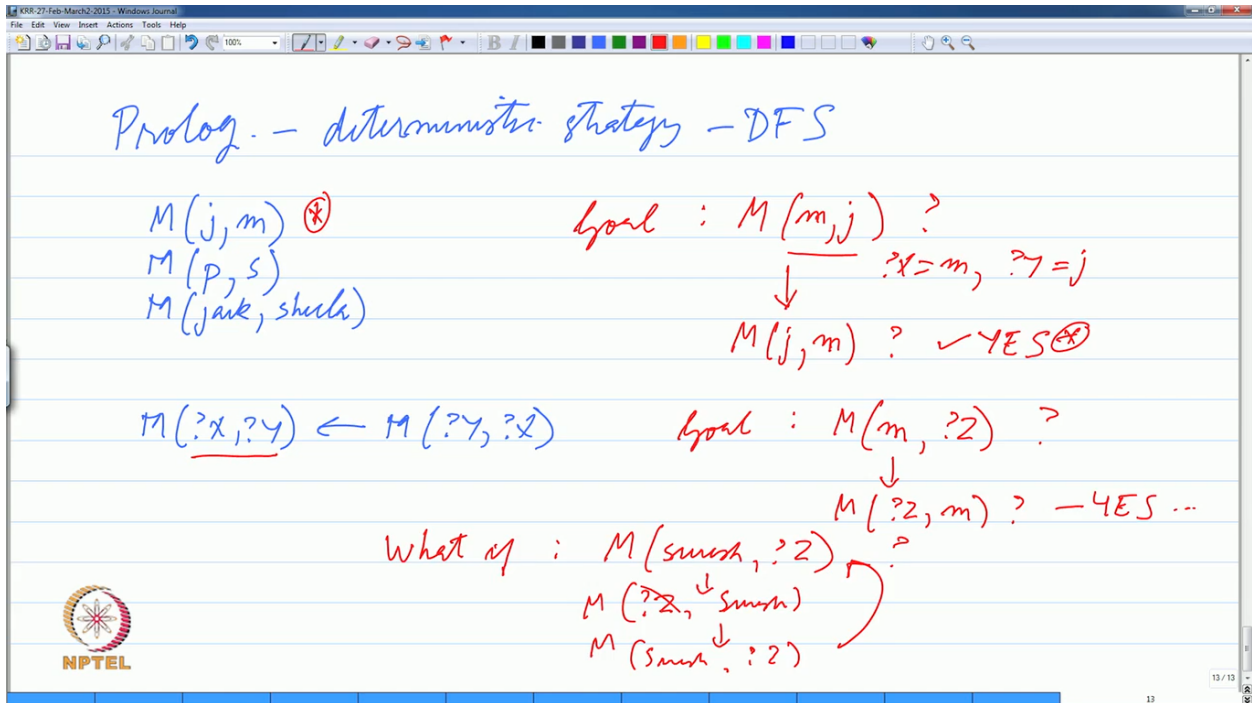 KRR-27-Feb-March2-2015 - Windows Journal
File Edit View Insert Actions Tools Help
100%
B I
Prolog. – deterministic strategy – DFS
M(j, m) *
M(p, s)
M(jack, sheela)
Goal : M(m, j) ?
?X = m, ?Y = j
M(j, m) ? ✓ YES *
M(?X, ?Y) ← M(?Y, ?X)
Goal : M(m, ?Z) ?
M(?Z, m) ? – YES ...
What if : M(suresh, ?Z) ?
M(?Z, suresh)
M(suresh, ?Z)
NPTEL
13 / 13
13